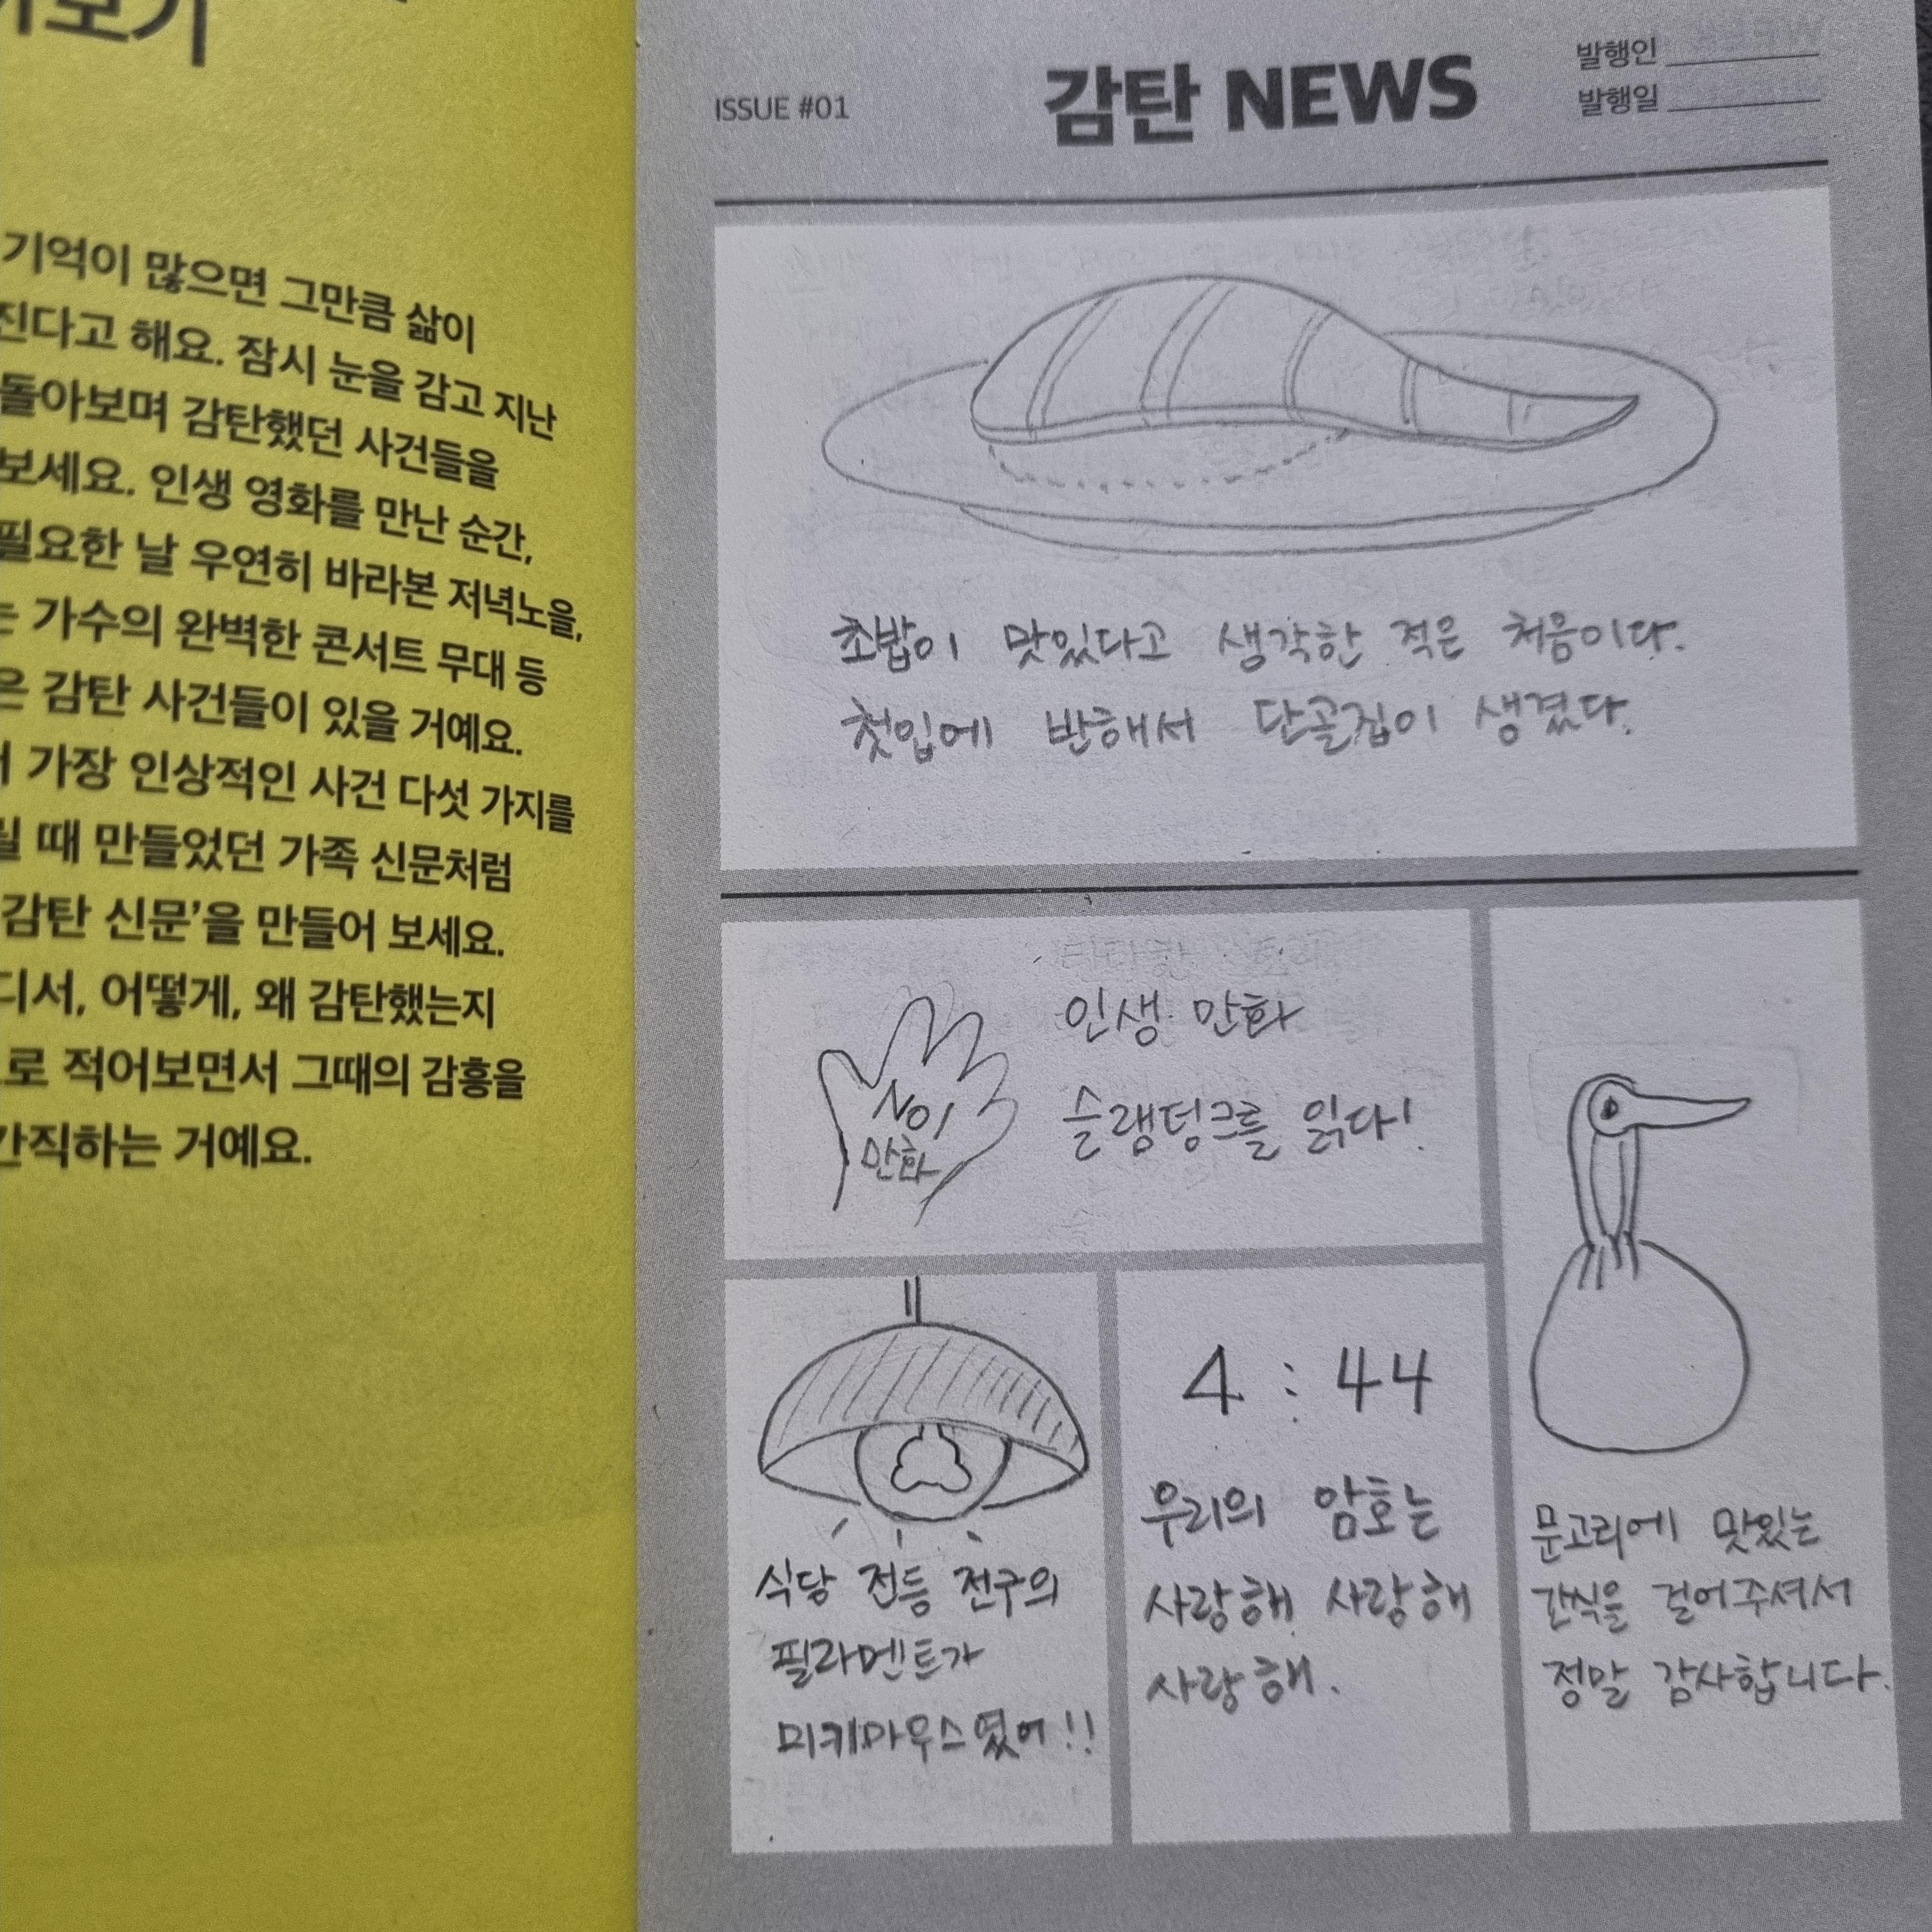 기억이 많으면 그만큼 삶이
진다고 해요. 잠시 눈을 감고 지난
돌아보며 감탄했던 사건들을
보세요. 인생 영화를 만난 순간,
필요한 날 우연히 바라본 저녁노을,
는 가수의 완벽한 콘서트 무대 등
은 감탄 사건들이 있을 거예요.
가장 인상적인 사건 다섯 가지를
릴 때 만들었던 가족 신문처럼
감탄 신문’을 만들어 보세요.
디서, 어떻게, 왜 감탄했는지
로 적어보면서 그때의 감흥을
간직하는 거예요.
ISSUE #01
감탄 NEWS
발행인
발행일
초밥이 맛있다고 생각한 적은 처음이다.
첫입에 반해서 단골집이 생겼다.
NO!
만화
인생 만화
슬램덩크를 읽다!
식당 전등 전구의
필라멘트가
미키마우스였어!!
4:44
우리의 암호는
사랑해 사랑해
사랑해.
문고리에 맛있는
간식을 걸어주셔서
정말 감사합니다.